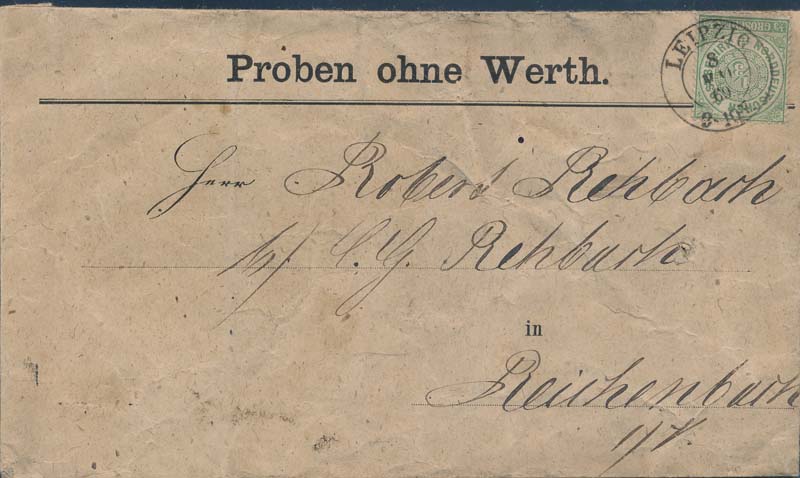 Proben ohne Werth.
LEIPZIG
Herr Robert Rehbach
C. G. Rehbach
in
Reichenbach